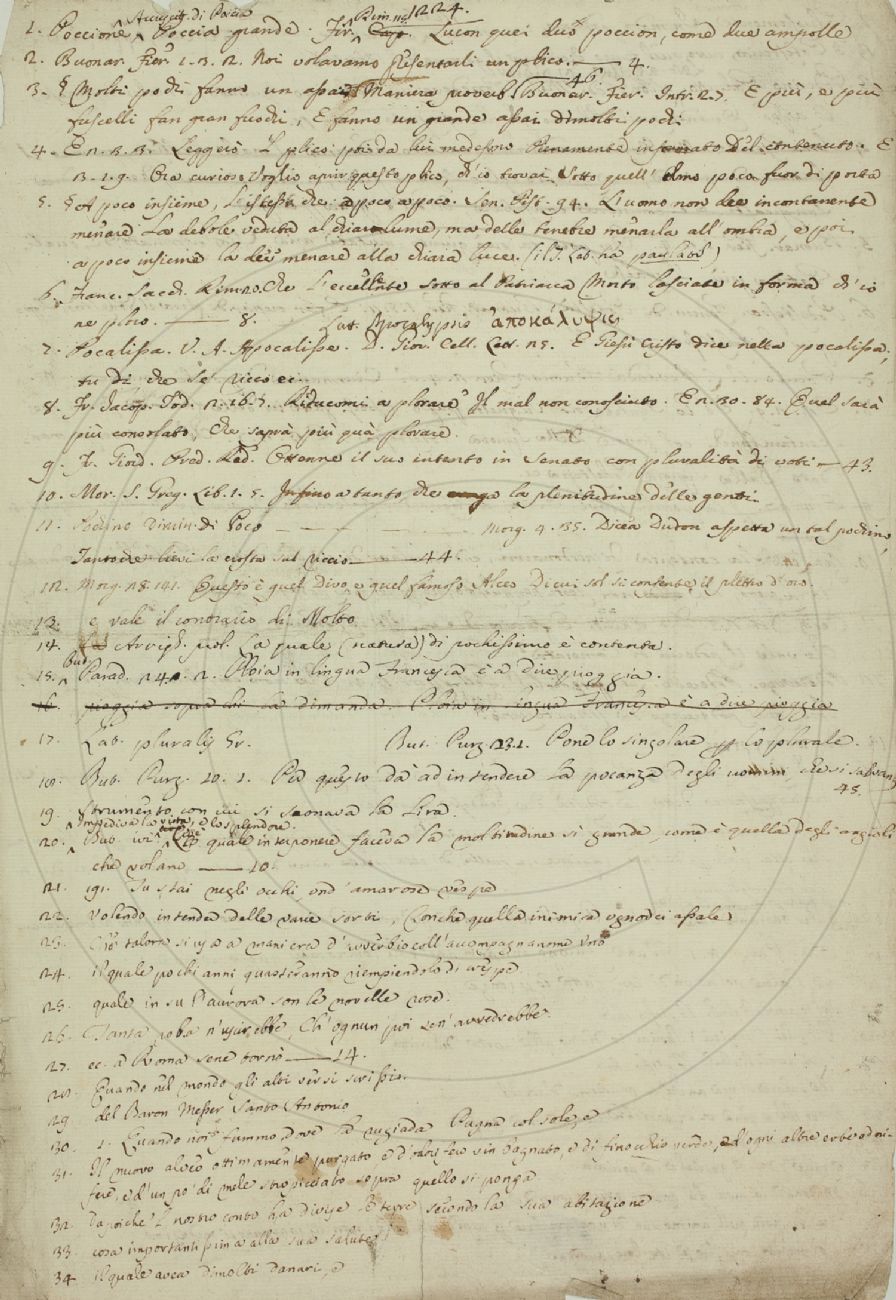 Accrescit. di Poccia Rim. no 1224.
1. Poccione. Poccia grande. Fir. Lucon quei duo poccion, come due ampolle
2. Buonar. Fier. 1. 3. 2. Noi volavamo presentarli un plico. — 4.
46.
3. § Molti pochi fanno un assai Maniera proverb. Buonar. Fier. Intr. 2. 7. E più, e più
fuscelli fan gran fuochi, E fanno un grande assai dimolti pochi
4. E 2. 2. 3. Leggerò 'l plico poi da lui medesmo Pienamente informato Del contenuto. E
3. 1. 9. Ora curioso voglio aprir questo plico, ch'io trovai Sotto quell' olmo poco fuor di porta
5. § A poco insieme, L'istesso che a poco a poco. Sen. Pist. 94. L'uomo non dee incontanente
menare La debole veduta al chiaro lume, ma delle tenebre menarla all'ombra, e poi
a poco insieme la dee menare alla chiara luce. (il T. Lat. ha paulatim)
6. Franc. Sacch. Rim. 20. Che L'eccellente Sotto al Patriarca Morto lasciate in forma ch'io
ne ploro. — 8. Lat. Apocalypsis ἀποκάλυψις
7. Pocalissa. V. A. Appocalisse. D. Giov. Cell. Lett. 25. E Giesù Cristo dice nella pocalissa,
tu di, che se' ricco ec.
8. Fr. Jacop. Tod. 2. 16. 7. Riducomi a plorare Il mal non conosciuto. E 2. 30. 84. Qual sarà
più consolato, che saprà più quà plorare.
9. Fr. Giord. Pred. Red. Ottenne il suo intento in Senato con pluralità di voti — 43.
10. Mor. S. Greg. Lib. 1. 5. Infino a tanto, che la plenitudine delle genti
11. Pochino Dimin. di Poco — — — — Morg. 4. 35. Dicea Dudon aspetta un tal pochino,
Tanto che lievi la crosta sul riccio — 44.
12. Morg. 28. 141. Questo è quel divo, e quel famoso Alceo Di cui sol si consente il plettro d'oro.
13. e vale il contrario di Molto
14. Arrigh. prol. La quale (natura) di pochissimo è contenta.
15. But. Parad. 24. 2. Ploia in lingua Francesca è a dire pioggia.
16. pioggia sopra la dimanda. Ploia in lingua Francesca è a dire pioggia
17. Lat. pluralis Gr. But. Purg. 23. 1. Pone lo singolare per lo plurale.
18. But. Purg. 10. 1. Per questo dà ad intendere la pocanza degli uomini, che si salvan
45.
19. Strumento con cui si suonava la Lira.
Impediva la vista, e lo splendore.
20. But. ivi: La quale interponere faceva la moltitudine si grande, come è quella degli angioli
che volano — 10.
21. 191. Tu stai negli occhi, ond' amarose vespe
22. Volendo intender delle varie sorti, Conche quella inimica ognodei assale
23. talora si usa a maniera d'avverbio coll'accompagnanome Uno
24. il quale pochi anni guasteranno riempiendolo di vespe
25. quale in su l'aurora son le novelle rose.
26. Tanta roba n'uscirebbe, Ch'ognun poi sen'avvedrebbe
27. ec. a Roma sene tornò — 14.
28. Quando nel mondo gli alti versi scrissi.
29. del Baron Messer Santo Antonio
30. 1. Quando noi fummo, dove la rugiada Pugna col sole, e
31. Il nuovo alveo ottimamente purgato e d'abrostine sia bagnato, e di finocchio verde, e d'ogni altre erbe odori-
fere, e d'un po' di mele stropicciato sopra quello si ponga
32. Dapoiche 'l nostro conto ha divise le terre secondo la sua abitazione
33. cosa importantissima alla sua salute
34. il quale avea dimolti danari, e